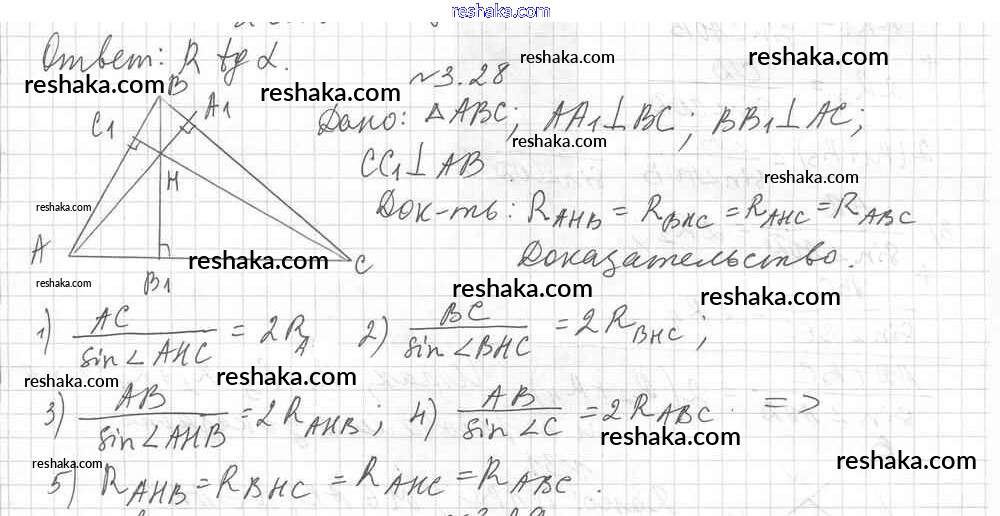 reshaka.com
Ответ: R tg α.
reshaka.com
reshaka.com
reshaka.com
№3.28
B
A1
C1
H
A
B1
C
Дано: △ABC; AA1⊥BC; BB1⊥AC;
reshaka.com
CC1⊥AB
reshaka.com
reshaka.com
Док-ть: R_AHB = R_BHC = R_AHC = R_ABC
Доказательство.
reshaka.com
reshaka.com
reshaka.com
reshaka.com
1) AC / sin∠AHC = 2R_A 2) BC / sin∠BHC = 2R_BHC;
reshaka.com
reshaka.com
3) AB / sin∠AHB = 2R_AHB; 4) AB / sin∠C = 2R_ABC. =>
reshaka.com
reshaka.com
reshaka.com
5) R_AHB = R_BHC = R_AHC = R_ABC.